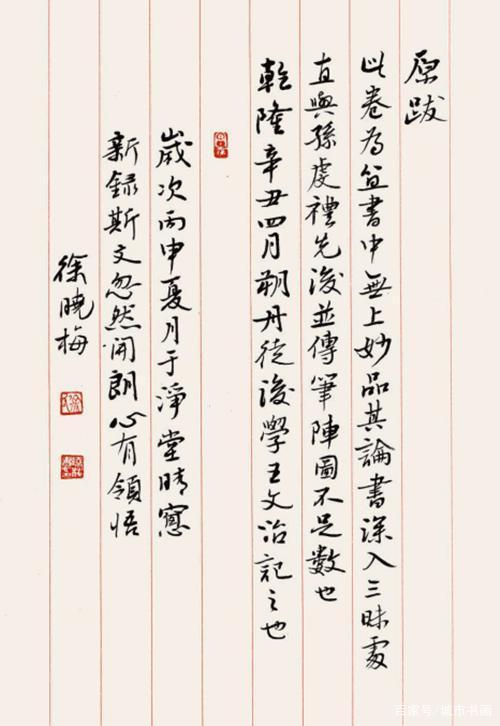 原跋
此卷為笪書中無上妙品其論書深入三昧處
直與孫虔禮先後並傳筆陣圖不足數也
乾隆辛丑四月朔丹徒後學王文治記之也
歲次丙申夏月于淨堂晴窻
新録斯文忽然開朗心有領悟
徐曉梅
百家号/城市书画